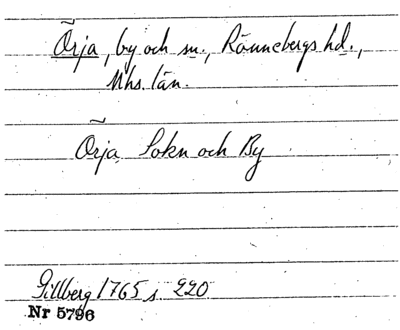 Örja, by och sn., Rönnebergs hd.,
Mhs. län.
Örja Sokn och By
Gillberg 1765 s. 220
Nr 5796